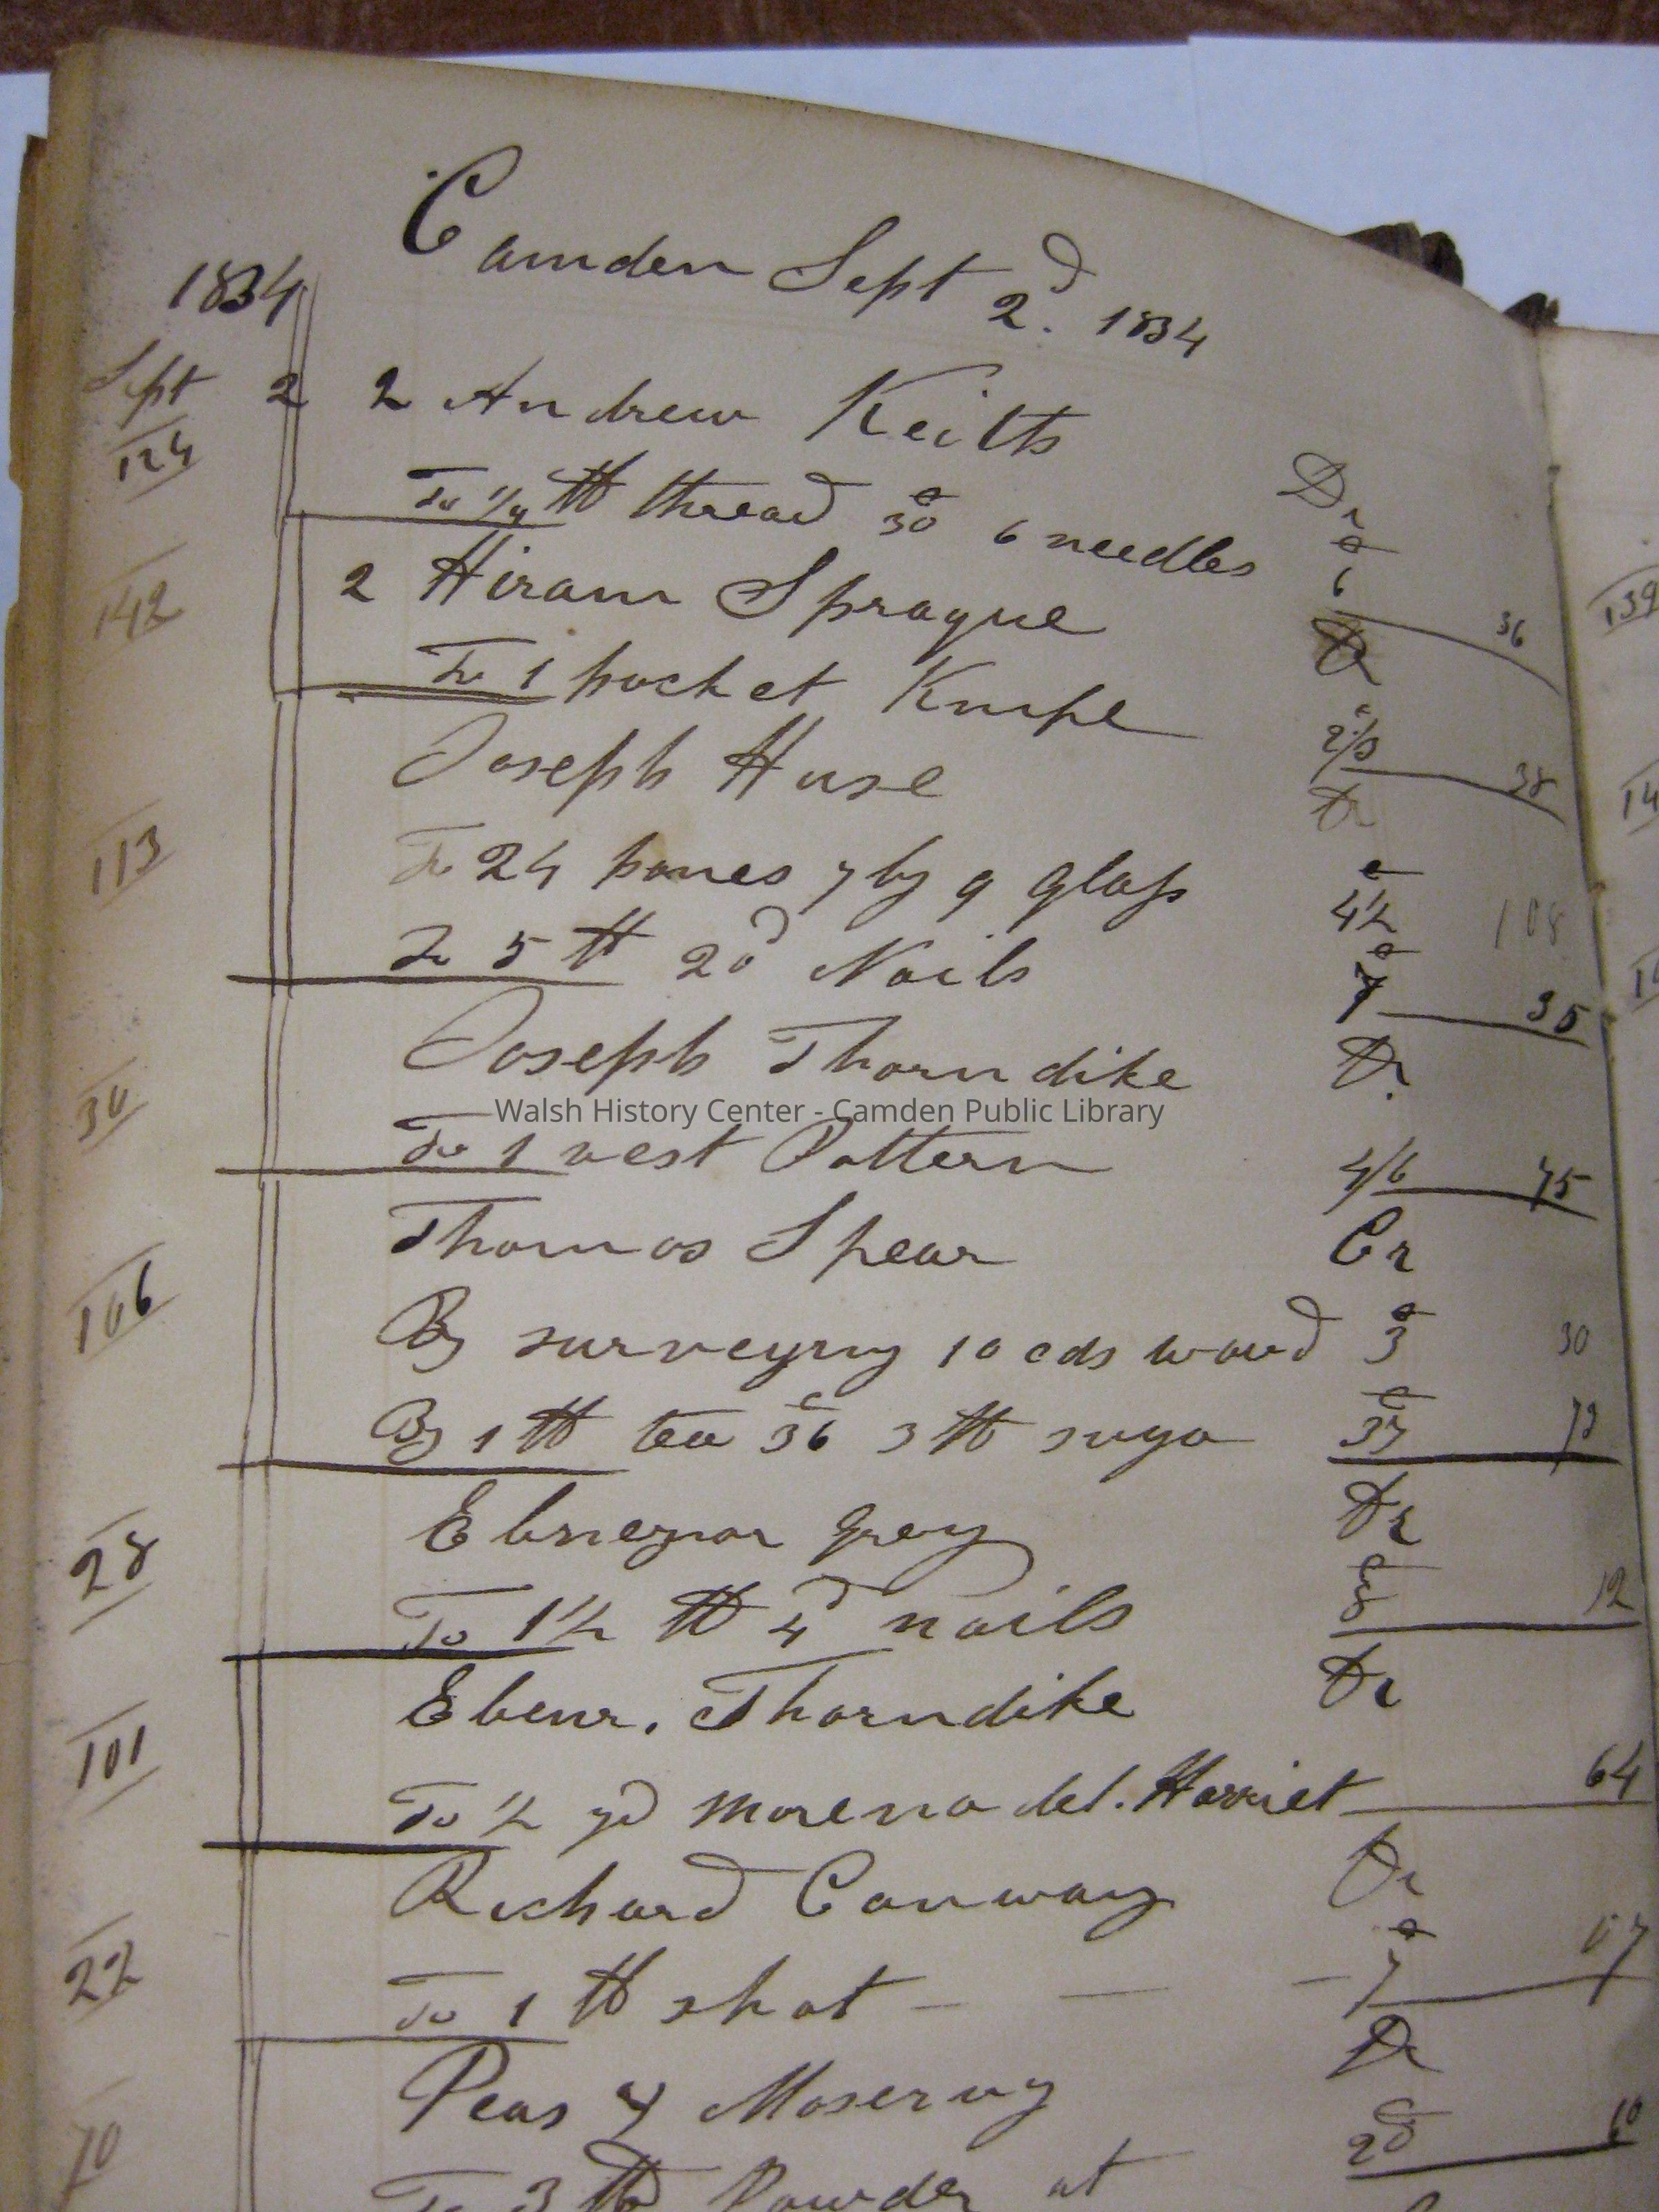 Camden Sept 2d. 1834
1834
Sept 2 2 Andrew Keith Dr
124 To 1/4 ℔ thread 30 c 6 needles 6 c 36
142 2 Hiram Sprague Dr
To 1 pocket Knife 2/3 38
Joseph Huse Dr
113 To 24 panes 7 by 9 glass 4½ c 108
To 5 ℔ 20d Nails 7 c 35
Joseph Thorndike Dr.
30 To 1 vest Pattern 4/6 75
Walsh History Center - Camden Public Library
Thomas Spear Cr
106 By surveying 10 cds wood 3 c 30
By 1 ℔ tea 36 c 3 ℔ suga 37 c 73
grey Dr
28 To 1½ ℔ 4d nails 8 c 12
Ebenr. Thorndike Dr
101 To ½ yd moreno del. Harriet 64
Richard Conway Dr
22 To 1 ℔ shot - — - 7 c 07
Peas & Dr
70 To 3 ℔ Powder at 20 c 60
139